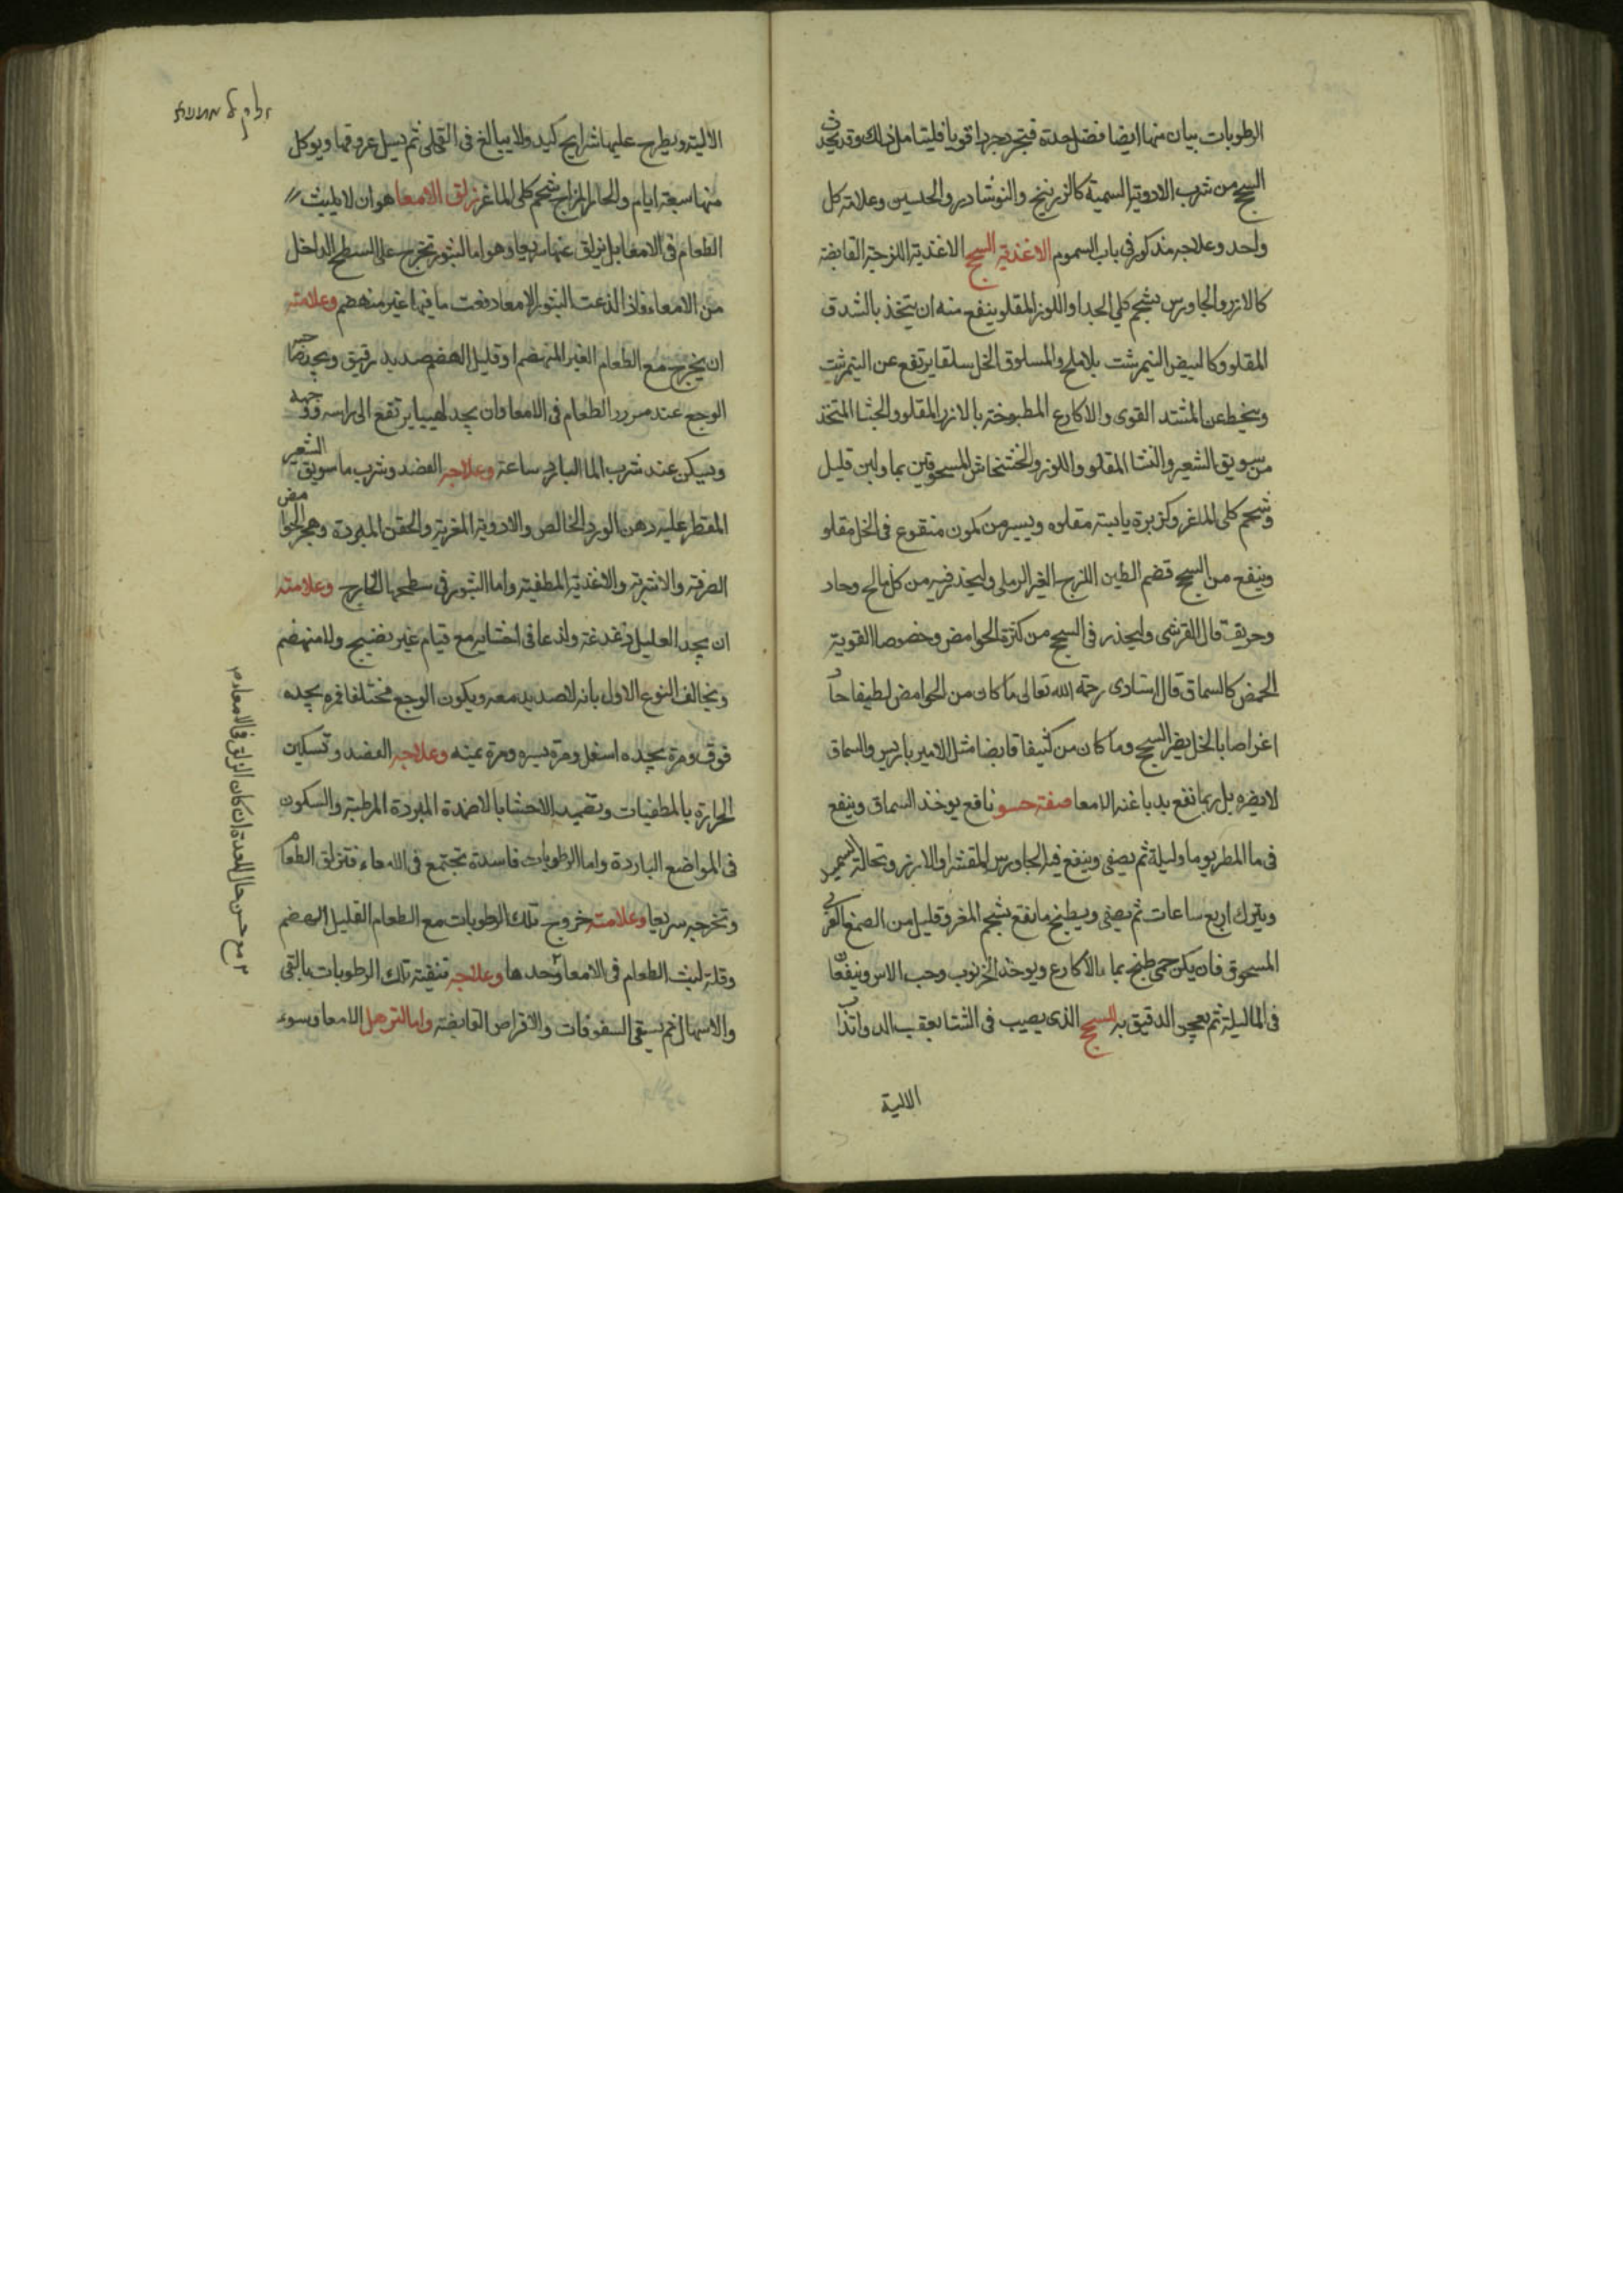 الرطوبات بيان منها ايضا فضل حدة فتجرد جردا قويا فليتامل ذلك وقد يحدث
السحج من شرب الادوية السمية كالزرنيخ والنوشادر والجلسين وعلامة كل
واحد وعلاجه مذكور في باب السموم الاغذية السحج الاغذية اللزجة القابضة
كالارز والجاورس بشحم كلي الجدا واللوز المقلو ينفع منه ان يتخذ بالشدق
المقلو وكالبيض النيمرشت بلا ملح والمسلوق الخل سلقا يرتفع عن النيمرشت
وينحط عن المشتد القوى والاكارع المطبوخة بالارز المقلو والحشا المتخذ
من سويق الشعير والنشا المقلو واللوز والخشخاش المسحوقين بماء ولبن قليل
وشحم كلى الماغز وكزبرة يابسة مقلوه ويسير من كمون منقوع في الخل مقلو
وينفع من السحج قضم الطين اللزج الغير الرملى وليحذر فيه من كل مالح وحاد
وحريف قال القرشى وليحذر في السحج من كثرة الحوامض وخصوصا القوية
الحمض كالسماق قال استادى رحمة الله تعالى ما كان من الحوامض لطيفا حاد
اغواصا بالخل يضر السحج وما كان من كثيفا قابضا مثل الامير باريس والسماق
لا يضره بل ربما نفع بدباغته الامعا صفة حسو نافع يوخذ السماق وينفع
في ما المطر يوما وليلة ثم يصفى وينفع فيه الجاورس المقشر والارز ونحالة السميد
ويترك اربع ساعات ثم يصفى ويطبخ ما نفع بشحم المغز وقليل من الصمغ العربى
المسحوق فان يكن حمى طبخ بماء الاكارع ويوخذ الخرنوب وحب الاس وينفعان
في الماء ليلة ثم يعجن الدقيق به السحج الذى يصيب في الشتا بعقب الدوا تذاب
الالية
الالية ويطرح عليها شرايح كبد ولا يبالغ في القلى ثم يسيل عروقها ويوكل
منها سبعة ايام والحار المزاج شحم كلى الماغز زلق الامعا هو ان لا يلبث
الطعام في الامعا بل يزلق عنها سريعا وهو اما لبثور تخرج على السطح الداخل
من الامعاء فاذا لذعت البثور الامعا دفعت ما فيها غير منهضم وعلامته
ان يخرج مع الطعام الغير المنهضم او قليل الهضم صديد رقيق ويجد صاحبه
الوجع عند مرور الطعام في الامعا وان يجد لهيبا يرتفع الى راسه ووجهه
ويسكن عند شرب الما البارد ساعة وعلاجه الفصد وشرب ما سويق الشعير
المقطر عليه دهن الورد الخالص والادوية المغرية والحقن المبردة وهجر الحوامض
الصرفة والاشربة والاغذية المطفية واما البثور في سطحها الخارج وعلامته
ان يجد العليل دغدغة ولذعا في احشايه مع قيام غير نضيج ولا منهضم
ويخالف النوع الاول بانه لا صديد معه ويكون الوجع مختلفا فمره يجده
فوق ومرة يجده اسفل ومرة يسره ومرة يمينه وعلاجه الفصد وتسكين
الحرارة بالمطفيات وتضميد الاحشا بالاضمدة المبردة المرطبة والسكون
في المواضع الباردة واما الرطوبات فاسدة تجتمع في الامعاء فتزلق الطعام
وتخرجه سريعا وعلامته خروج تلك الرطوبات مع الطعام القليل الهضم
وقلة لبث الطعام في الامعا وحدها وعلاجه تنقية تلك الرطوبات بالقى
والاسهال ثم يسقى السفوفات والاقراص القابضة واما لترهل الامعا وسوء
مع حسن حال المعدة ان كان الزلق في الامعاء